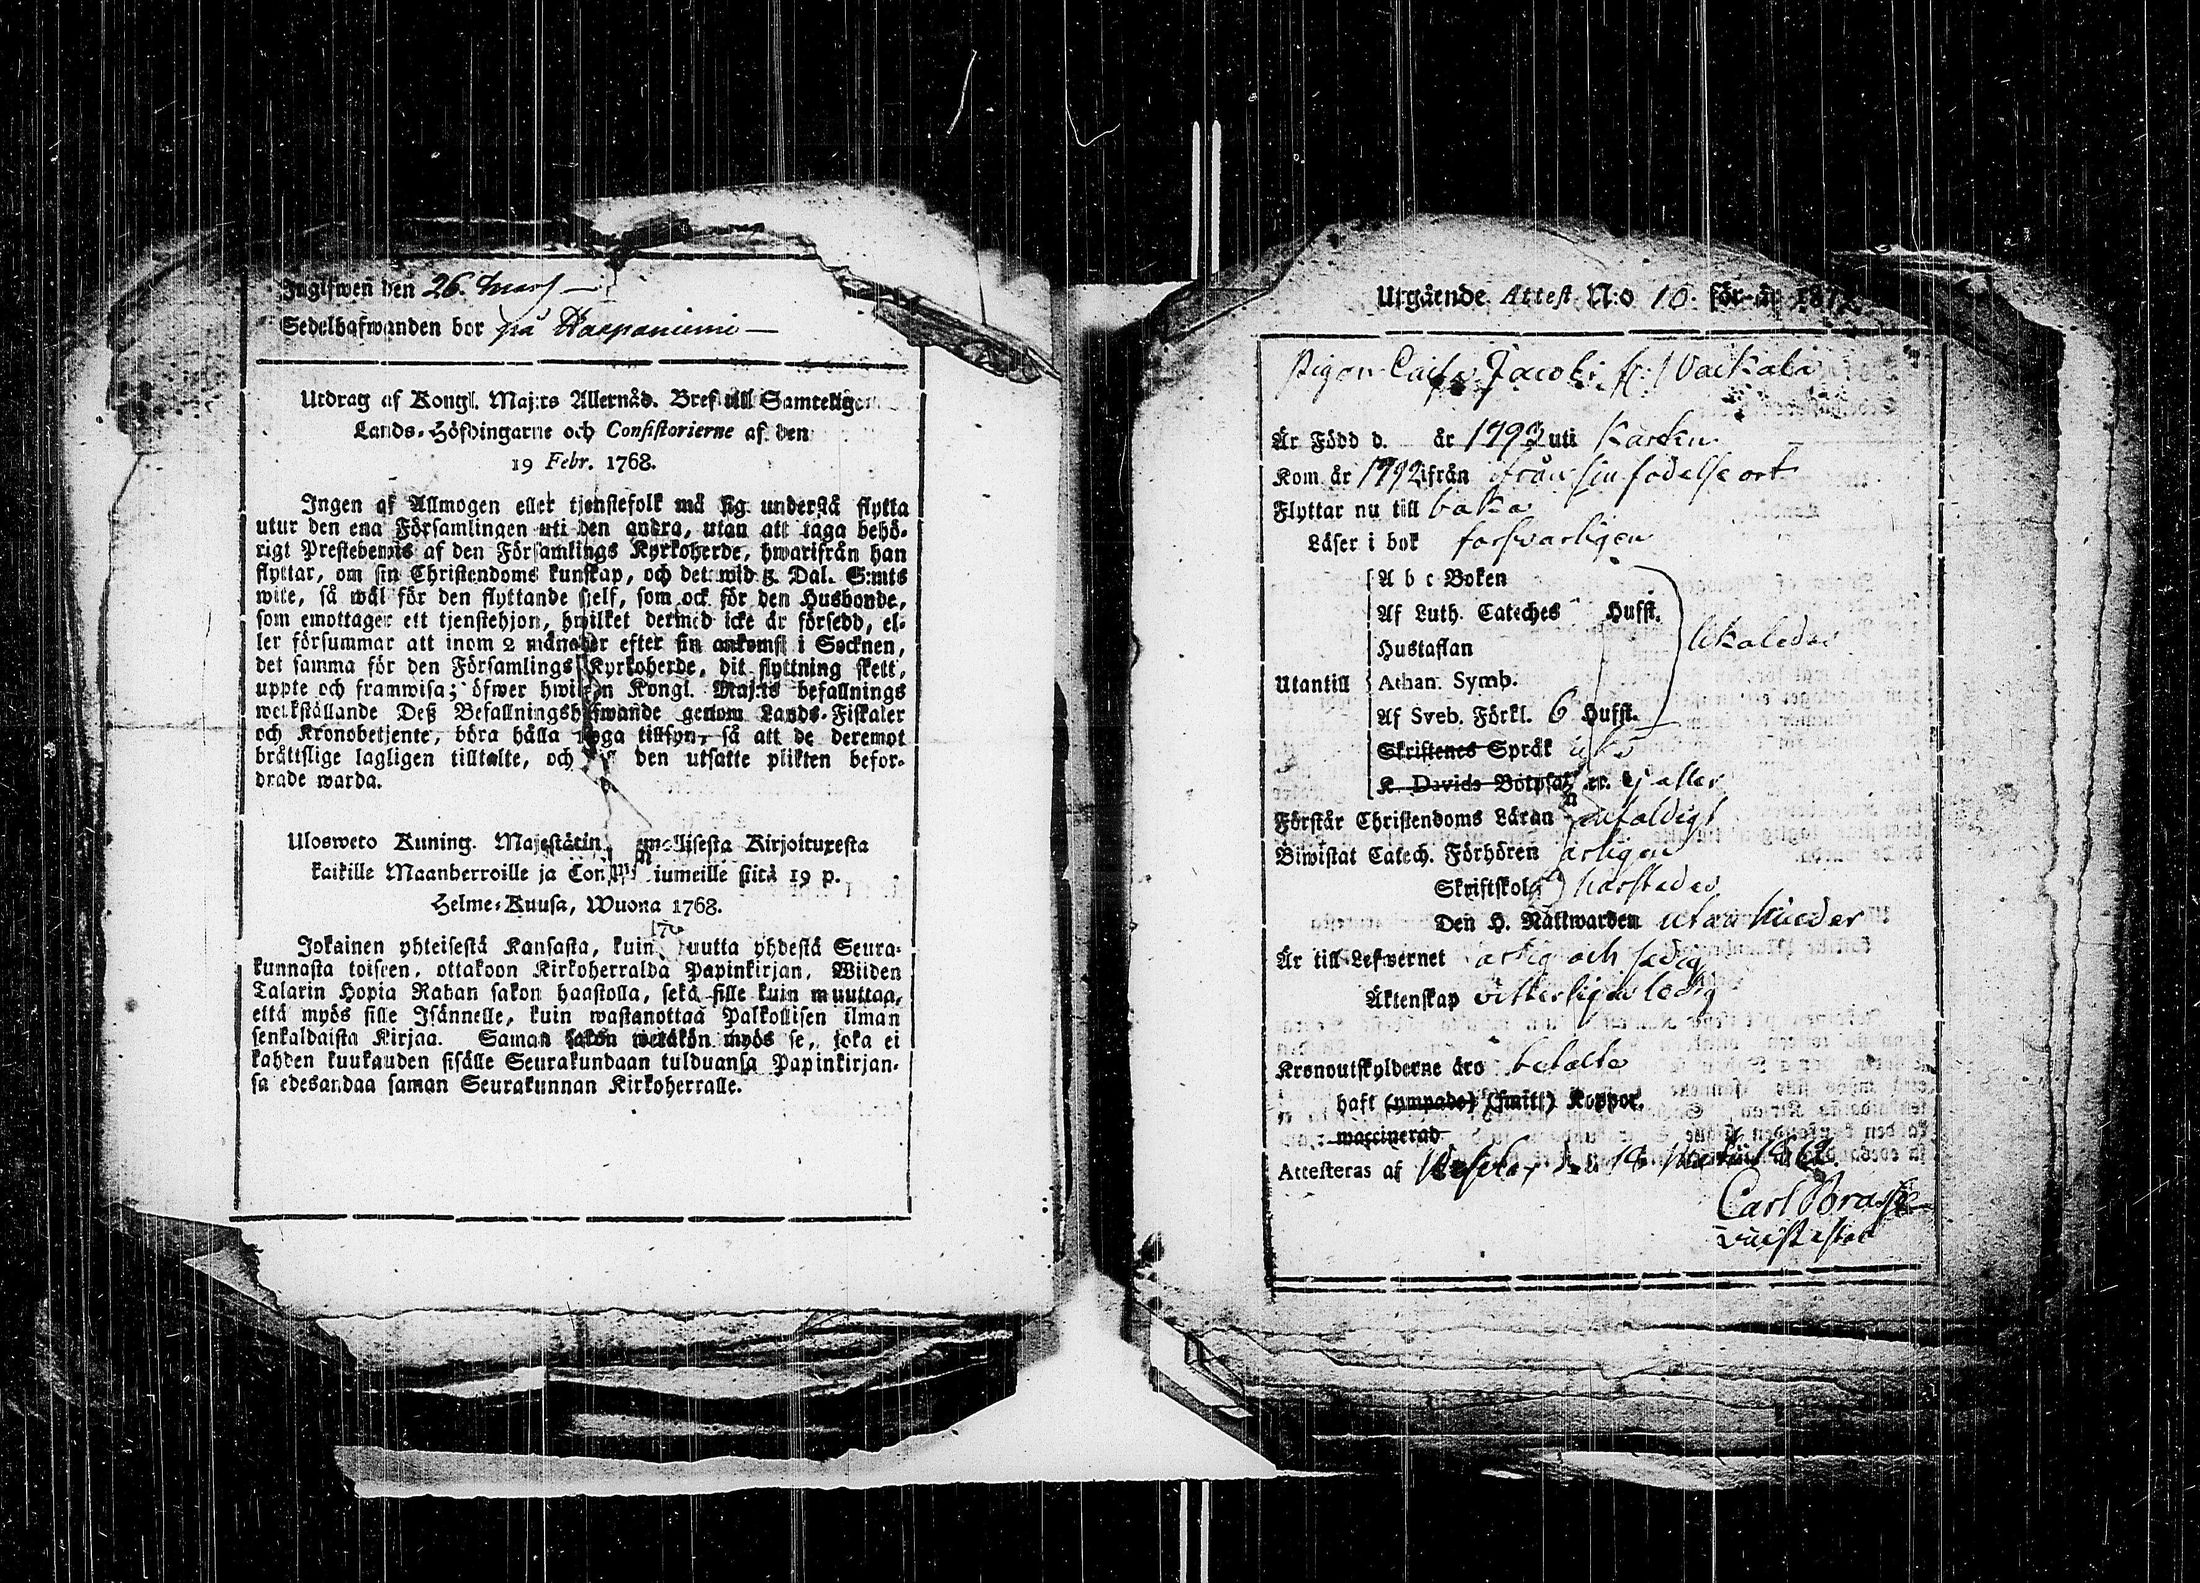 Inglswen den 26. Mars
Sedelhafwanden bor på Haapaniemi
Utdrag af Kongl. Maj:ts Allernåd. Bref till Samtelige
Lands-Höfdingarne och Consistorierne af den
19 Febr. 1768.
Ingen af Allmogen eller tjenstefolk må sig understå flytta
utur den ena Församlingen uti den andra, utan att taga behö-
rigt Prestebewis af den Församlings Kyrkoherde, hwarifrån han
flyttar, om sin Christendoms kunskap, och det wid 5. Dal. S:mts
wite, så wäl för den flyttande sjelf, som ock för den Husbonde,
som emottager ett tjenstehjon, hwilket dermed icke är försedd, el-
ler försummar att inom 2 månader efter sin ankomst i Socknen,
det samma för den Församlings Kyrkoherde, dit flyttning skett,
uppte och framwisa; öfwer hwilken Kongl. Maj:ts befallnings
werkställande Deß Befallningshafwande genom Lands-Fiskaler
och Kronobetjente, böra hålla noga tillsyn, så att de deremot
bråttslige lagligen tilltalte, och den utsatte plikten befor-
drade warda.
Ulosweto Kuning. Majestätin Kirjoituxesta
kaikille Maanherroille ja siitä 19 p.
Helme-Kuusa, Wuona 1768.
Jokainen yhteisestä Kansasta, kuin muutta yhdestä Seura-
kunnasta toiseen, ottakoon Kirkoherralda Papinkirjan, Wiiden
Talarin Hopia Rahan sakon haastolla, sekä sille kuin muuttaa,
että myös sille Isännelle, kuin wastanottaa Palkollisen ilman
senkaldaista Kirjaa. Saman sakon wetäkön myös se, joka ei
kahden kuukauden sisälle Seurakundaan tulduansa Papinkirjan-
sa edesandaa saman Seurakunnan Kirkoherralle.
Utgående Attest N:o 10. för år
Pigan Jacobs
Är Född d. år 1793 uti Karkku
Kom år 1792 ifrån från sin födelse ort
Flyttar nu till baka
Läser i bok forswarligen
A b c Boken
Af Luth. Cateches Hufst.
Hustaflan likaledes
Utantill Athan. Symb.
Af Sveb. Förkl. 6 Hufst.
Skriftenes Språk
K. Davids Botpsal ej eller
Förstår Christendoms Läran enfaldigt
Biwistat Catech. Förhören årligen
Skriftskola härstedes
Den H. Nattwarden utan hinder
Är till Lefwernet ärlig och sedig
Äktenskap vitterligen ledig
Kronoutskylderne äro betalte
haft (ympade) (smitt) Koppor.
waccinerad
Attesteras af
Carl